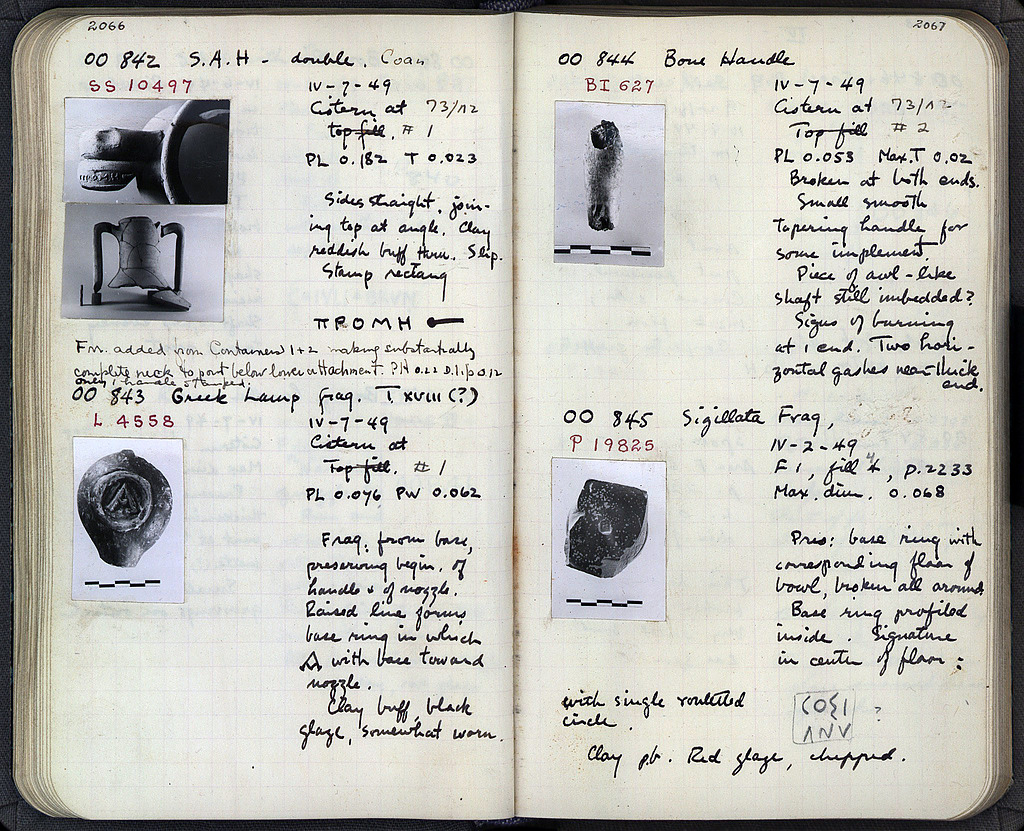 2066
OO 842 S.A.H - double. Coan
SS 10497
IV-7-49
Cistern at 73/ΛΖ
top fill. #1
PL 0.182 T 0.023
Sides straight, join-
ing top at angle. Clay
reddish buff thru. Slip.
Stamp rectang
ΠΡΟΜΗ
Frr. added from Containers 1+2 making substantially
complete neck to point below lower attachment. PH 0.22 D. lip 0.12
only 1 handle stamped.
OO 843 Greek Lamp frag. T XVIII (?)
L 4558
IV-7-49
Cistern at
Top fill. #1
PL 0.076 PW 0.062
Frag. from base,
preserving begin. of
handle & of nozzle.
Raised line forms
base ring in which
A with base toward
nozzle.
Clay buff, black
glaze, somewhat worn.
2067
OO 844 Bone Handle
BI 627
IV-7-49
Cistern at 73/ΛΖ
Top fill #2
PL 0.053 Max. T 0.02
Broken at both ends.
Small smooth
tapering handle for
some implement.
Piece of awl-like
shaft still imbedded?
Signs of burning
at 1 end. Two hori-
zontal gashes near thick
end.
OO 845 Sigillata Frag,
P 19825
IV-2-49
F1, fill 4, p.2233
Max. dim. 0.068
Pres: base ring with
corresponding floor of
bowl, broken all around
Base ring profiled
inside. Signature
in center of floor:
with single rouletted
circle.
COSI ?
ANV
Clay p.b. Red glaze, chipped.